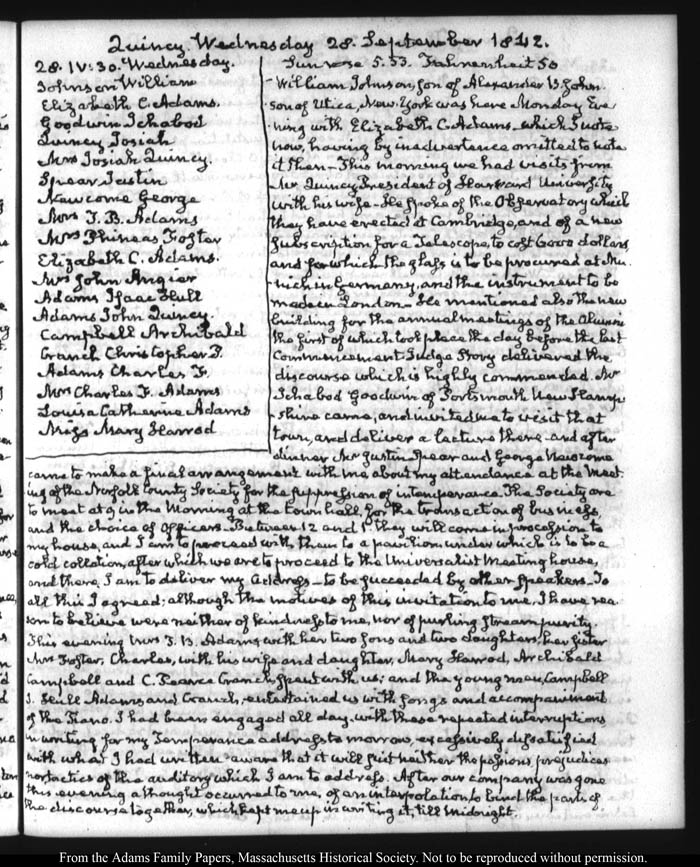 Quincy Wednesday 28. September 1842.
28. IV:30. Wednesday.
Johnson William
Elizabeth C. Adams.
Goodwin Ichabod
Quincy Josiah
Mrs Josiah Quincy
Spear Justin
Newcome George
Mrs T. B. Adams
Mrs Phineas Foster
Elizabeth C. Adams.
Mrs John Angier
Adams Isaac Hull
Adams John Quincy.
Campbell Archibald
Cranch Christopher P.
Adams Charles F.
Mrs Charles F. Adams
Louisa Catherine Adams
Miss Mary Harrod
Sun rose 5.53. Fahrenheit 50
William Johnson, son of Alexander B. John-
son of Utica, New-York was here Monday Eve-
ning with Elizabeth C. Adams—which I note
now, having by inadvertence omitted to note
it then—This morning we had visits from
Mr Quincy President of Harvard University
with his wife—He spoke of the Observatory which
they have erected at Cambridge, and of a new
subscription for a Telescope, to cost dollars
and for which the glass is to be procured at Mu-
nich in Germany, and the instrument to be
made in London—He mentioned also the new
building for the annual meetings of the Alumni
the first of which took place the day before the last
Commencement Judge Story delivered the
discourse which is highly commended. Mr
Ichabod Goodwin of Portsmouth New Hamp-
shire came, and invited me to visit that
town, and deliver a lecture there—and after
dinner Mr Justin Spear and George Newcome
came to make a final arrangement with me about my attendance at the Meet-
ing of the Norfolk County Society for the suppression of intemperance. The Society are
to meet at 9 in the Morning at the town hall, for the transaction of business,
and the choice of Officers—Between 12 and 1 they will come in procession to
my house, and I am to proceed with them to a pavilion under which is to be a
cold collation, after which we are to proceed to the Universalist Meeting house,
and there, I am to deliver my Address—to be succeeded by other speakers—To
all this I agreed: although the motives of this invitation to me, I have rea-
son to believe were neither of kindness to me, nor of purling stream purity.
This evening Mrs T. B. Adams with her two sons and two daughters, her sister
Mrs Foster, Charles, with his wife and daughter, Mary Harrod, Archibald
Campbell and C. Pearce Cranch, spent with us; and the young men, Campbell
I. Hull Adams and Cranch, entertained us with songs and accompaniment
of the Piano. I had been engaged all day, with these repeated interruptions
in writing for my Temperance address to morrow, excessively dissatisfied
with what I had written—aware that it will suit neither the passions, prejudices
nor tactics of the auditory which I am to address. After our company was gone
this evening a thought occurred to me, of an interpolation to bind the parts of
the discourse together, which kept me up in writing it, till Midnight.
From the Adams Family Papers, Massachusetts Historical Society. Not to be reproduced without permission.